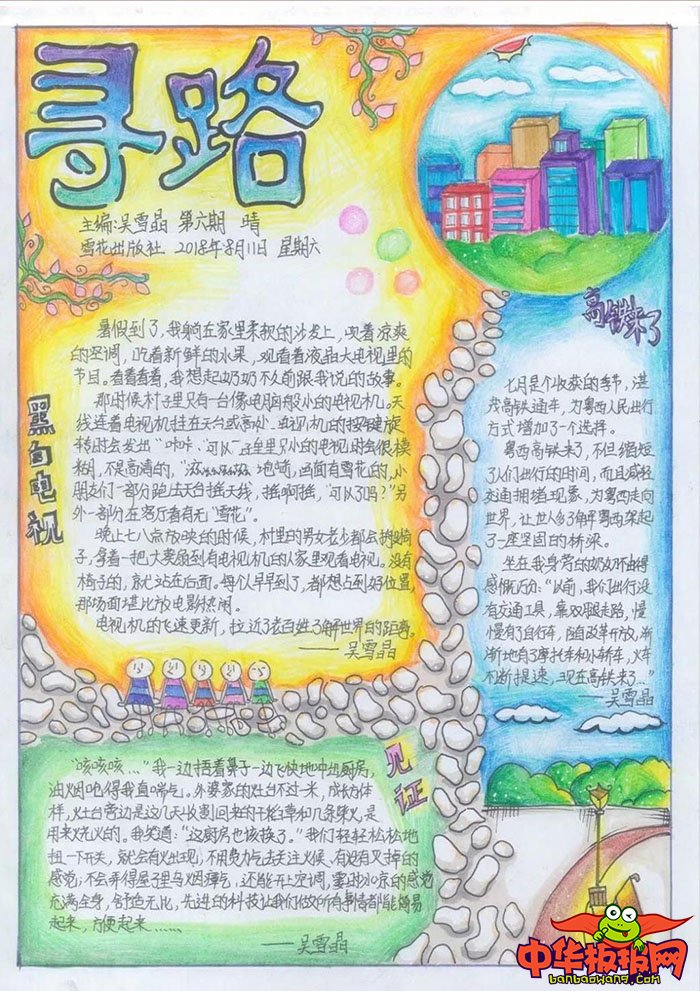 寻路
主编:吴雪晶 第六期 晴
雪花出版社 2018年8月11日 星期六
黑白电视
暑假到了,我躺在家里柔软的沙发上,吹着凉爽
的空调,吃着新鲜的水果,观看着液晶大电视里的
节目。看着看着,我想起奶奶不久前跟我说的故事。
那时候村子里只有一台像电脑般小的电视机。天
线连着电视机挂在天台或高处,电视机的按键旋
转时会发出“咔咔
小的电视时会很模
糊,不是高清的,
地响,画面有雪花的,小
朋友们一部分跑出天台摇天线,摇啊摇,“可以了吗?”另
外一部分在客厅看有无“雪花”。
晚上七八点放映的时候,村里的男女老少都会
椅
子,拿着一把大葵扇到有电视机的人家里观看电视。没有
椅子的,就站在后面。每个早早到了,都想占到好位置,
那场面堪比放电影热闹。
电视机的飞速更新,拉近了老百姓了解世界的距离。
——吴雪晶
高铁来了
七月是个收获的季节,湛
茂高铁通车,为粤西人民出行
方式增加了一个选择。
粤西高铁来了,不但缩短
了人们出行的时间,而且减轻
交通拥堵现象,为粤西走向
世界,让世人了解粤西架起
了一座坚固的桥梁。
坐在我身旁的奶奶不由得
感慨万分:“以前,我们出行没
有交通工具,靠双腿走路,慢
慢有了自行车,随着改革开放,渐
渐地有了摩托车和小轿车,火车
不断提速,现在高铁来了…”
——吴雪晶
见证
“咳咳咳…”我一边捂着鼻子一边飞快地冲出厨房,
油烟呛得我直喘气。外婆家的灶台不过一米,成长方体
样,灶台旁边是这几天收割回来的干稻草和几条柴火,是
用来烧火的。我笑道:“这厨房也该换了。”我们轻轻松松地
扭一下开关,就会有火出现,不用费力气去关注火候、有没有灭掉的
感觉;不会弄得屋子里乌烟瘴气,还能开上空调,霎时冰凉的感觉
充满全身,舒适无比,先进的科技让我们做所有事情都能简易
起来,方便起来……
——吴雪晶
中华板报网
banbaowang.com